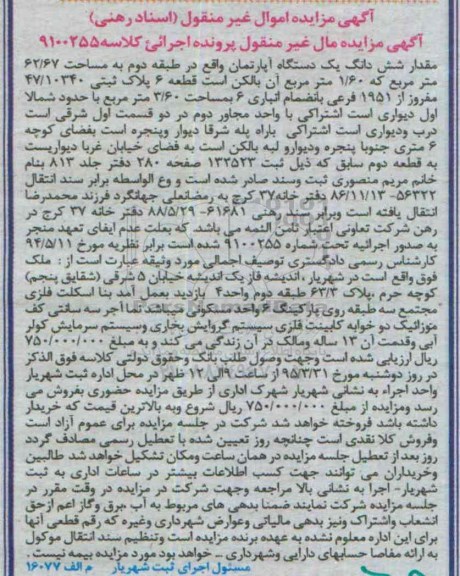 آگهی مزایده اموال غیر منقول (اسناد رهنی)
آگهی مزایده مال غیر منقول پرونده اجرائی کلاسه ۹۱۰۰۲۵۵
مقدار شش دانگ یک دستگاه آپارتمان واقع در طبقه دوم به مساحت ۶۲/۶۷
متر مربع که ۱/۶۰ متر مربع آن بالکن است قطعه ۶ پلاک ثبتی ۴۷/۱۰۳۴۰
مفروز از ۱۹۵۱ فرعی بانضمام انباری ۶ بمساحت ۳/۶۰ متر مربع با حدود شمالا
اول دیواری است اشتراکی با واحد مجاور دوم در دو قسمت اول شرقی است
درب ودیواری است اشتراکی باراه پله شرقا دیوار وپنجره است بفضای کوچه
۶ متری جنوبا پنجره ودیوارو لبه بالکن است به فضای خیابان غربا دیواریست
به قطعه دوم سابق که ذیل ثبت ۱۳۲۵۲۳ صفحه ۲۸۰ دفتر جلد ۸۱۳ بنام
خانم مریم منصوری ثبت وسند صادر شده است و وع الواسطه برابر سند انتقال
۵۶۳۲۲- ۸۶/۱۱/۱۳ دفتر خانه ۳۷ کرج به رمضانعلی جهانگرد فرزند محمدرضا
انتقال یافته است وبرابر سند رهنی ۶۱۶۸۱- ۸۸/۵/۲۹ دفتر خانه ۳۷ کرج در
رهن شرکت تعاونی اعتبار ثامن الئمه می باشد. که بعلت عدم ایفای تعهد منجر
به صدور اجرائیه تحت شماره ۹۱۰۰۲۵۵ شده است برابر نظریه مورخ ۹۴/۵/۱۱
کارشناس رسمی دادگستری توصیف اجمالی مورد وثیقه عبارت است از : ملک
فوق واقع است در شهریار ، اندیشه فاز یک اندیشه خیابان ۵ شرقی (شقایق پنجم)
کوچه حرم ،پلاک ۶۳/۳ طبقه دوم واحد۴ بازدید بعمل آمد بنا اسکلت فلزی
مجتمع سه طبقه روی پارکینگ ۶ واحد مسکونی میباشد نما آجر سه سانتی کف
موزائیک دو خوابه کابینت فلزی سیستم گرمایش بخاری وسیستم سرمایش کولر
آبی وقدمت آن ۱۳ ساله ومالک در آن زندگی می کند و به مبلغ ۷۵۰/۰۰۰/۰۰۰
ریال ارزیابی شده است وجهت وصول طلب بانک وحقوق دولتی کلاسه فوق الذکر
در روز دوشنبه مورخ ۹۵/۳/۳۱ از ساعت ۹ الی ۱۲ ظهر در محل اداره ثبت شهریار
واحد اجراء به نشانی شهریار شهرک اداری از طریق مزایده حضوری بفروش می
رسد ومزایده از مبلغ ۷۵۰/۰۰۰/۰۰۰ ریال شروع وبه بالاترین قیمت که خریدار
داشته باشد فروخته خواهد شد شرکت در جلسه مزایده برای عموم آزاد است
وفروش کلا نقدی است چنانچه روز تعیین شده با تعطیل رسمی مصادف گردد
روز بعد از تعطیل جلسه مزایده در همان ساعت ومکان تشکیل خواهد شد طالبین
وخریداران می توانند جهت کسب اطلاعات بیشتر در ساعات اداری به ثبت
شهریار- اجرا به نشانی بالا مراجعه وجهت شرکت در مزایده در وقت مقرر در
جلسه مزایده شرکت نمایند ضمنا بدهی های مربوط به آب ،برق وگاز اعم ازحق
انشعاب واشتراک ونیز بدهی مالیاتی وعوارض شهرداری وغیره که رقم قطعی آنها
برای این اداره معلوم نشده به عهده برنده مزایده است وتنظیم سند انتقال موکول
به ارائه مفاصا حسابهای دارایی وشهرداری ... خواهد بود مورد مزایده بیمه نیست .
مسئول اجرای ثبت شهریار م الف ۱۶۰۷۷